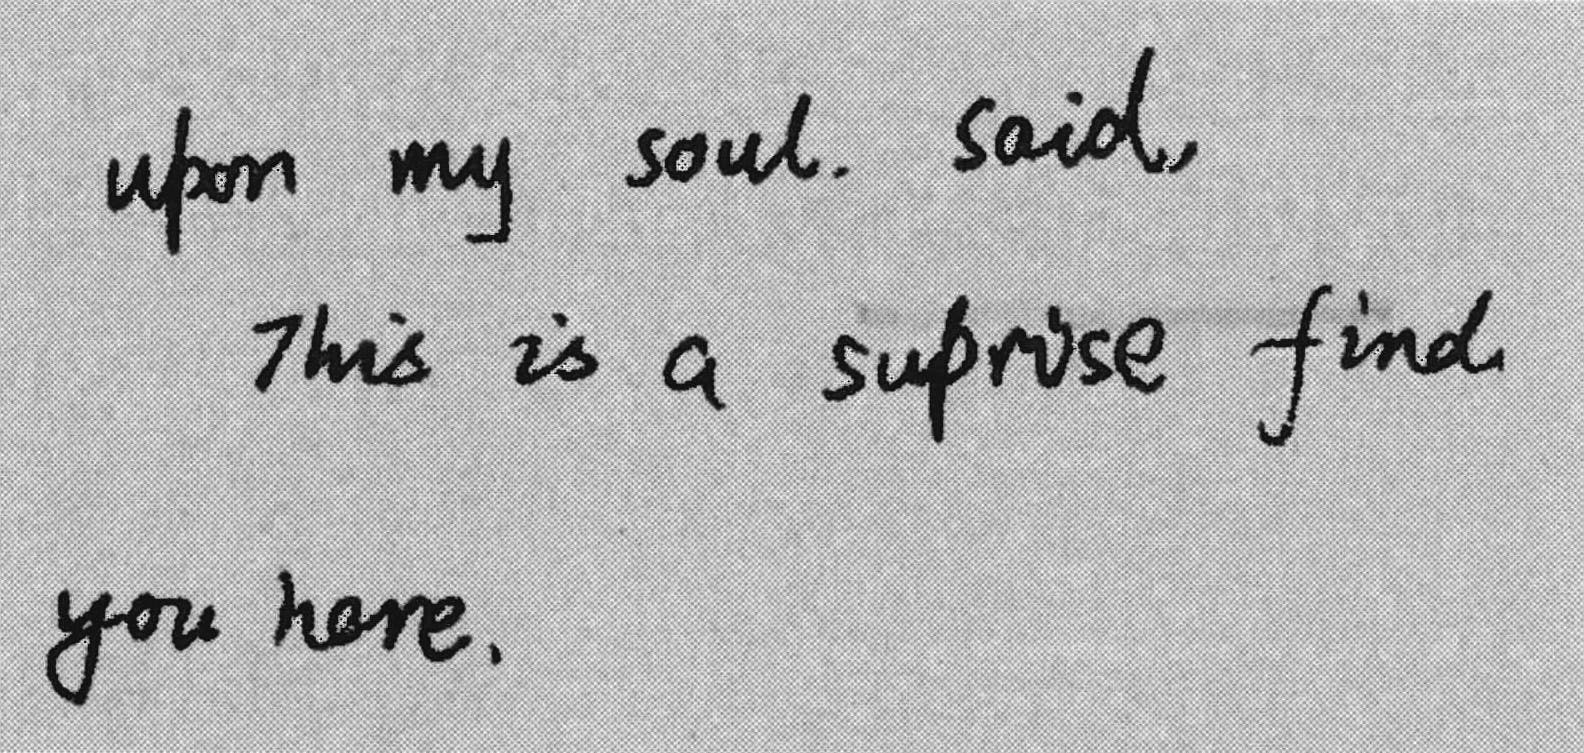 upon my soul. said,
This is a suprise find
you here.